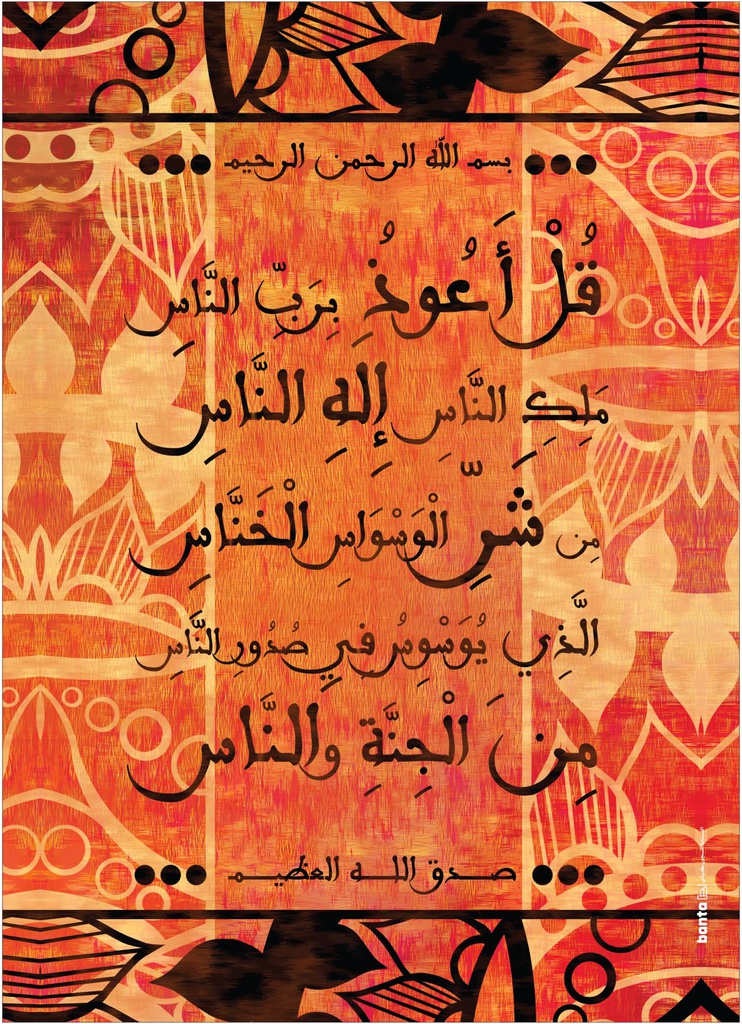 بسم الله الرحمن الرحيم
قُلْ أَعُوذُ بِرَبِّ النَّاسِ
مَلِكِ النَّاسِ إِلَهِ النَّاسِ
مِن شَرِّ الْوَسْوَاسِ الْخَنَّاسِ
الَّذِي يُوَسْوِسُ فِي صُدُورِ النَّاسِ
مِنَ الْجِنَّةِ وَالنَّاسِ
صدق الله العظيم
banta